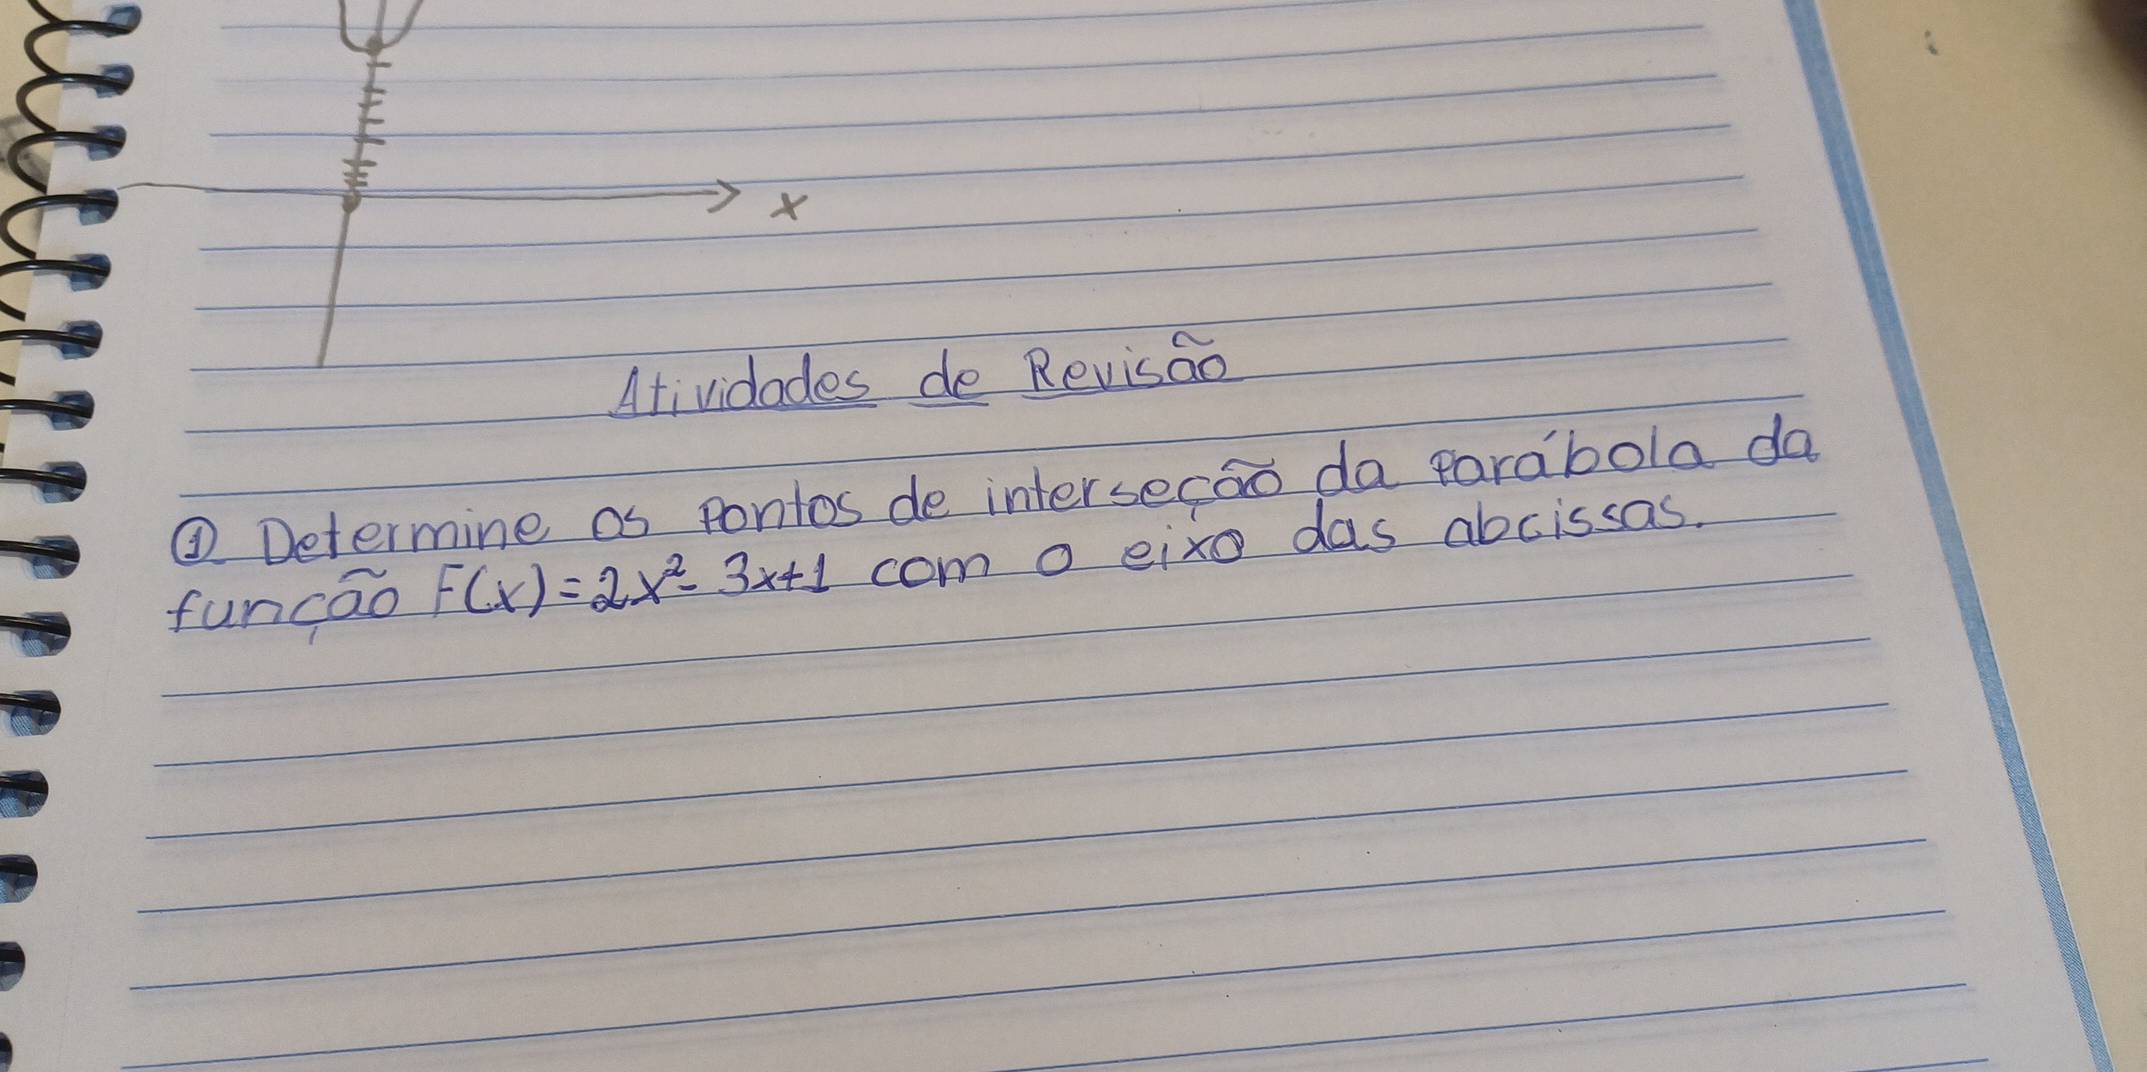 x
Atividades de Revisão
① Determine os pontos de interseção da parábola da
função F(x)=2x²-3x+1 com o eixo das abcissas.